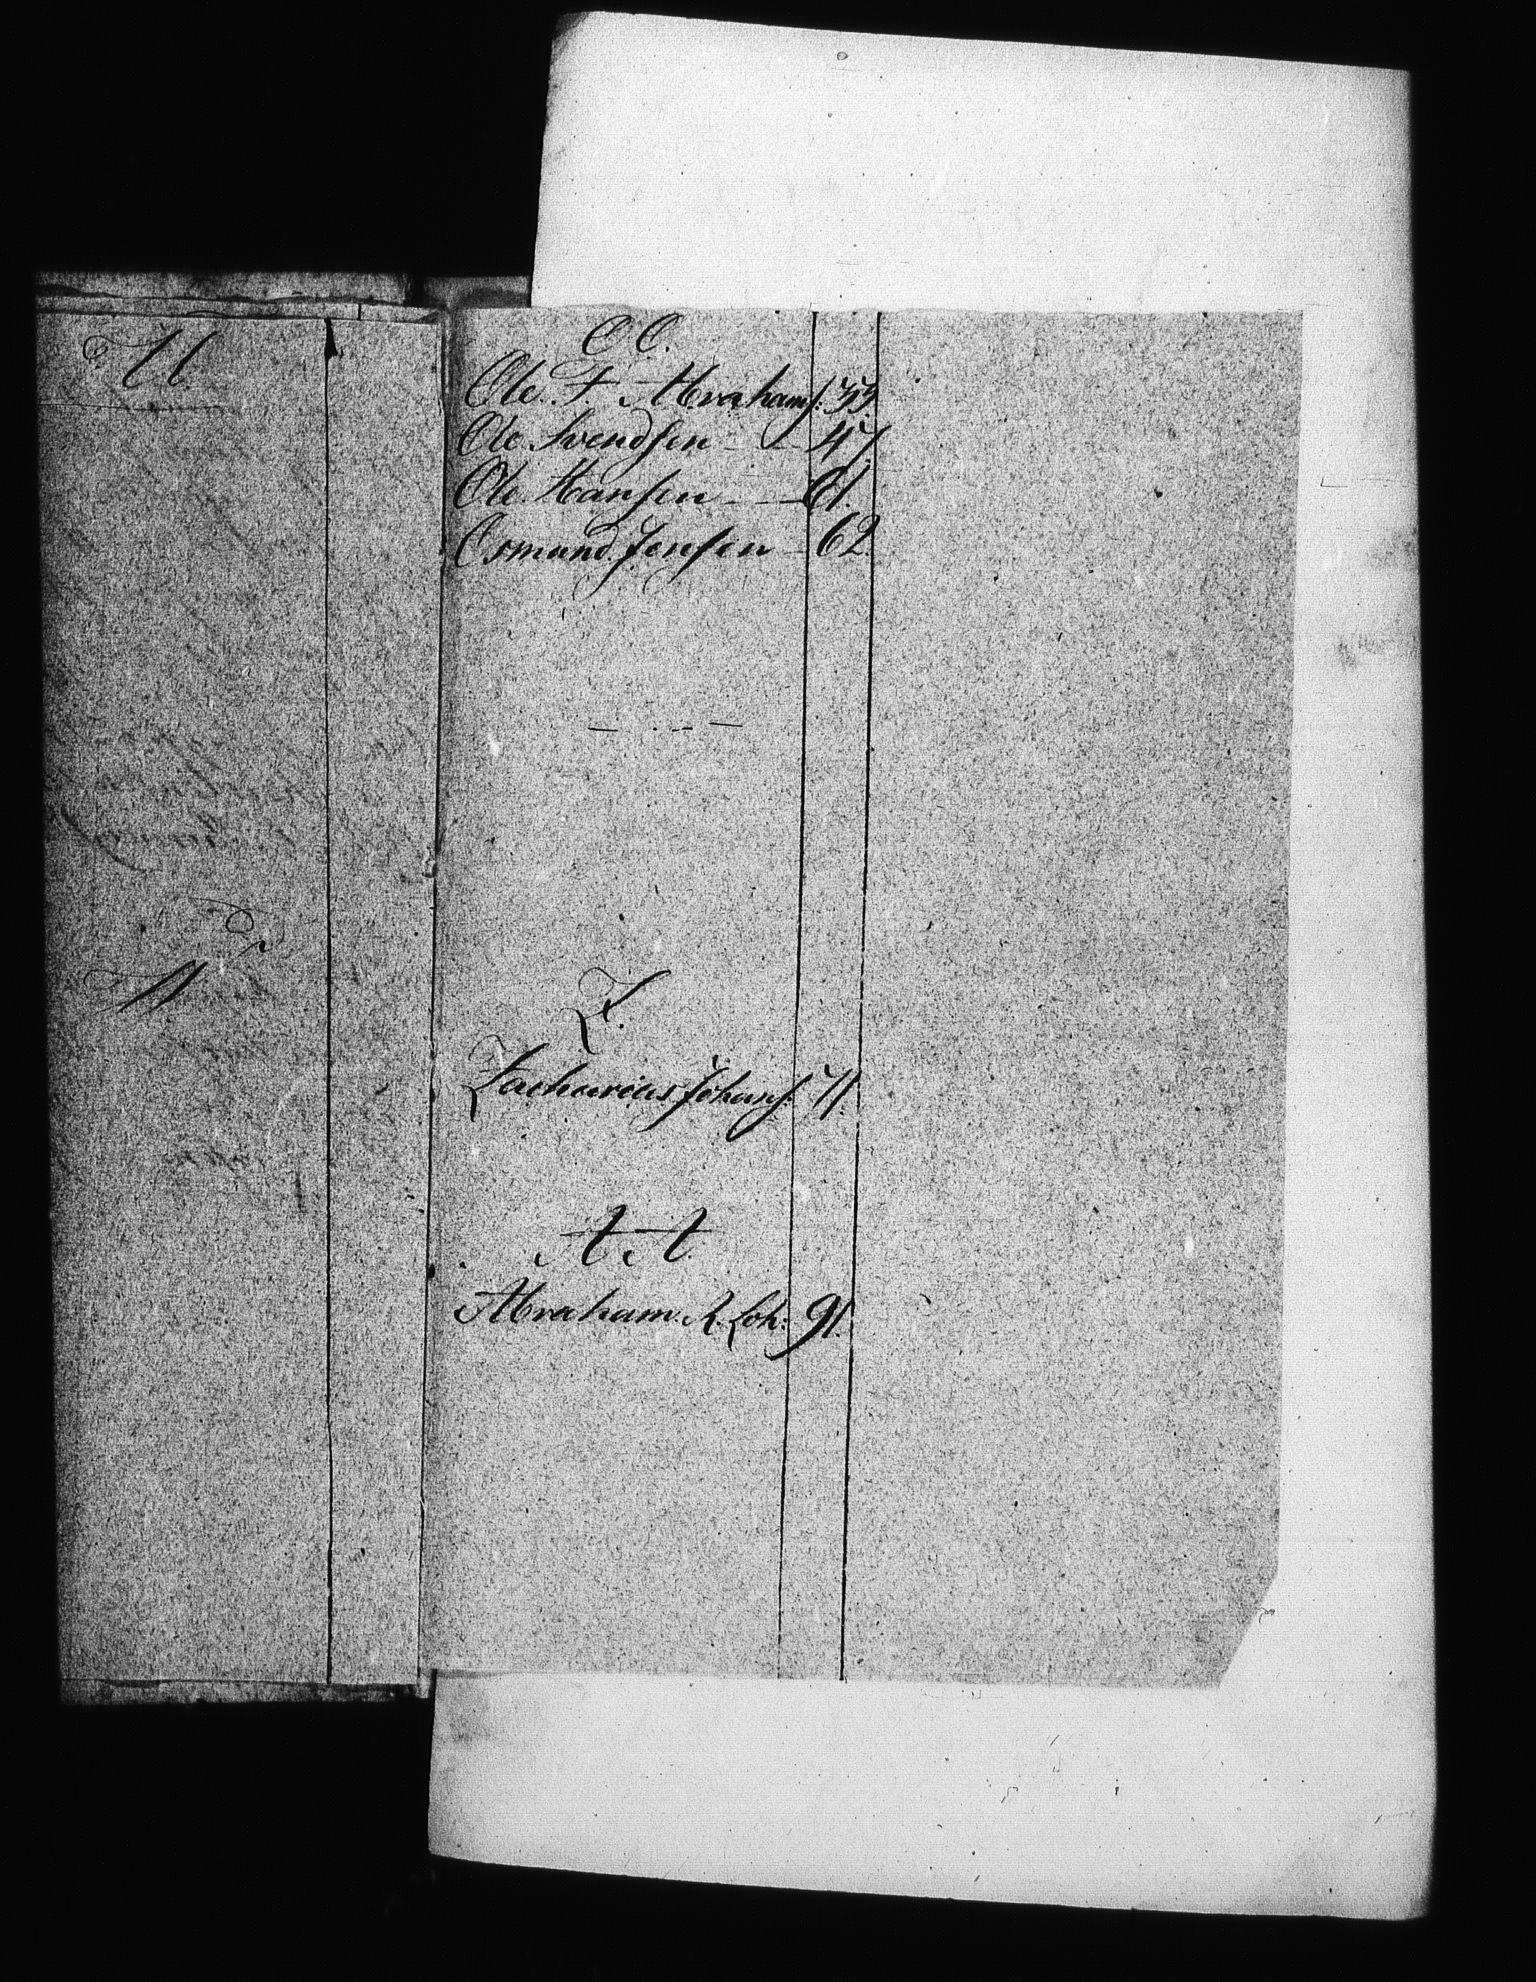 U.
O O.
Ole F Abrahams: 33.
Ole Svendsen - - 47.
Ole Hansen - - 61.
Osmund Jensen - 62.
Z.
Zacharias Johans: 71.
A A.
Abraham R. Loh: 91.